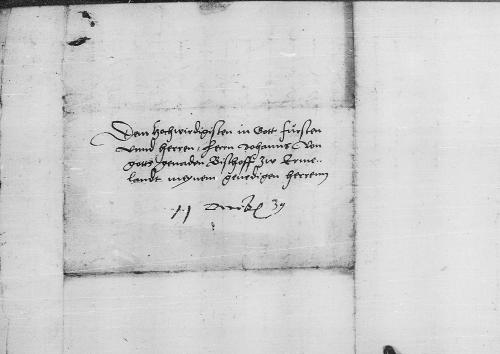 Dem Hochwirdigisten in Gott fursten
vnnd herren, hern Johanns von
gots genaden Bischoff zw Erme-
landt meynem genedigen herrenn